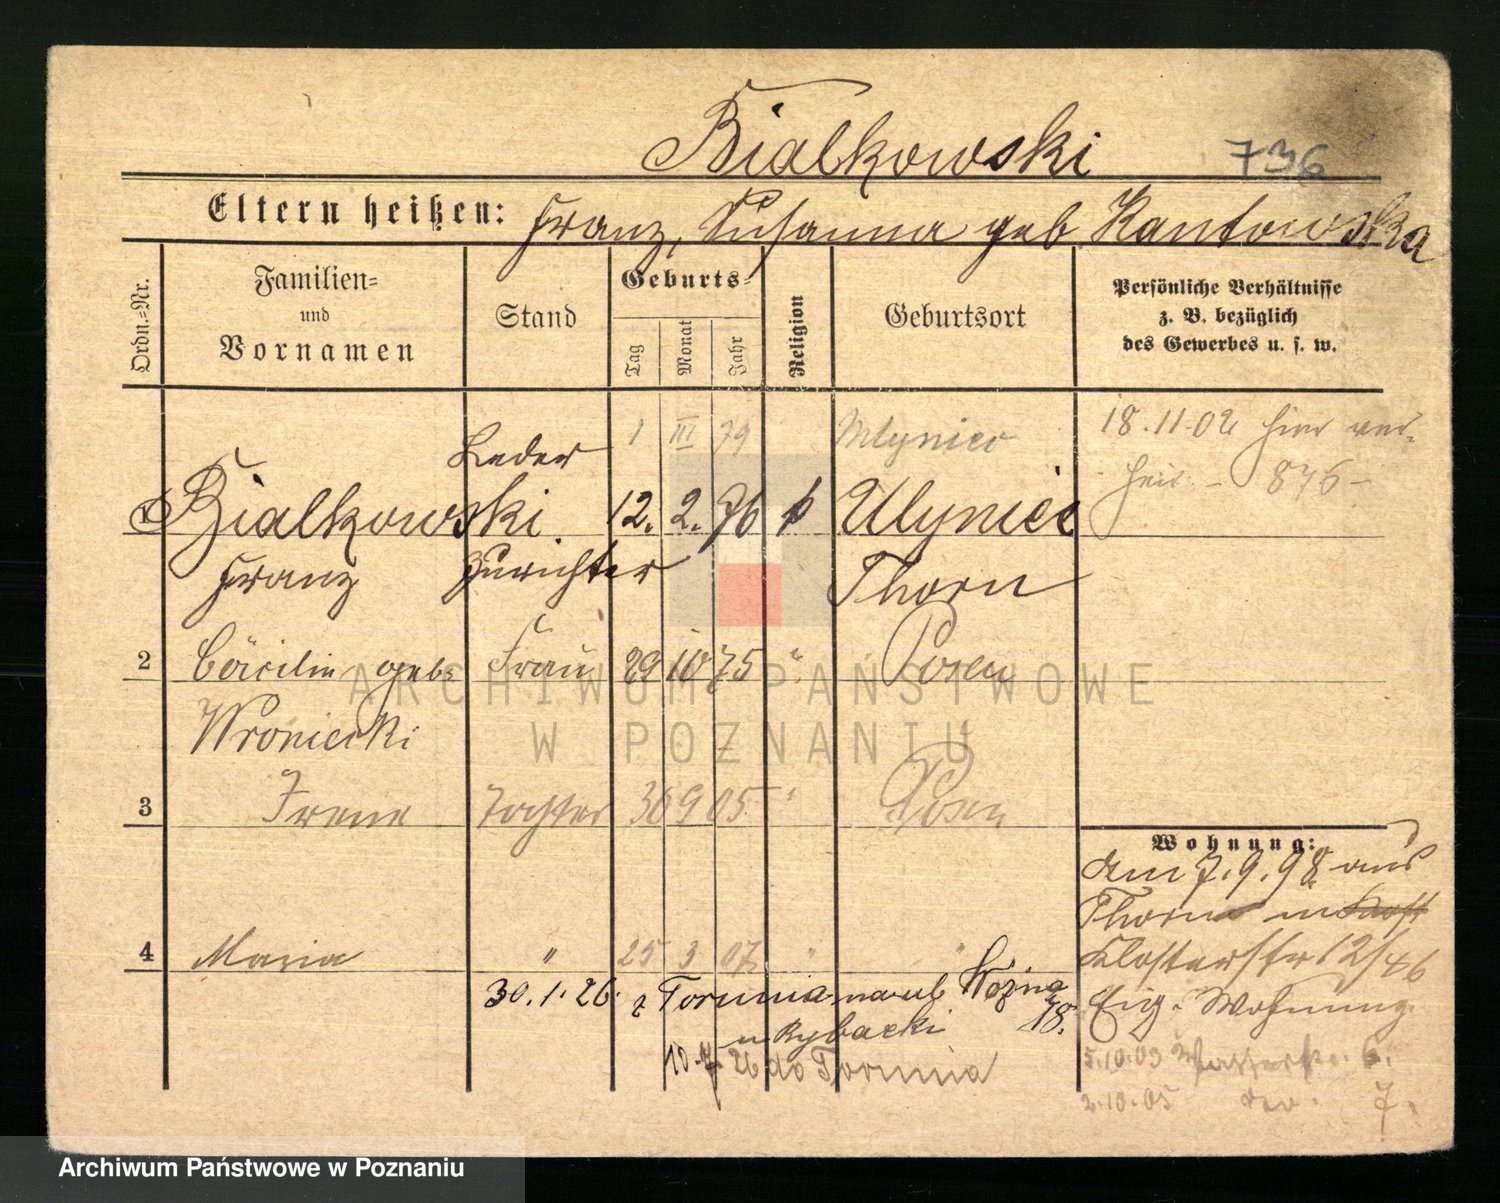 Bialkowski 736
Eltern heißen: Franz, Susanna geb Kantowska
Ordn.=Nr.
Familien=
und
Vornamen
Stand
Geburts=
Tag
Monat
Jahr
Religion
Geburtsort
Persönliche Verhältnisse
z. B. bezüglich
des Gewerbes u. s. w.
1 III 79 Mlyniec 18.11.02 hier ver-
Leder
heir. - 876 -
1 Bialkowski 12. 2. 76 k Mlyniec
Franz Zurichter Thorn
2 Cäcilie geb. Frau 29 10 75 " Posen
Wroniecki
3 Irene Tochter 30 9 05 " Posen
Wohnung:
am 7.9.98 aus
Thorn
4 Maria " 25 3 07 " "
Klosterstr 12/46
Eig. Wohnung.
30.1.26. z Torunia na ul Woźna
18.
u Rybacki
10.7 26 do Torunia
5.10.03 Wasserstr. 6.
2.10.05 7.
ARCHIWUM PAŃSTWOWE
W POZNANIU
Archiwum Państwowe w Poznaniu